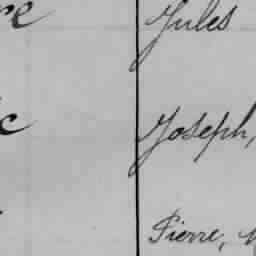 re Jules
c Joseph,
Pierre,